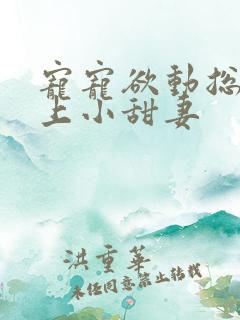 寵寵欲動總
上小甜妻
洪重華
未經同意禁止轉載